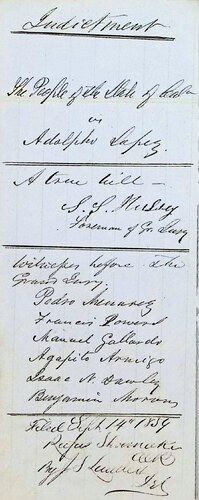 Indictment
The People of the State of Cala
vs
Adolpho Lopez.
A true bill —
Foreman of Gr Jury
Witnesses before the
Grand Jury.
Pedro
Francis Powers
Manuel Gallardo
Agapito
Isaac N.
Benjamin Moron
Filed Sept 14th 1854
Rufus Shoemaker
Clk
By